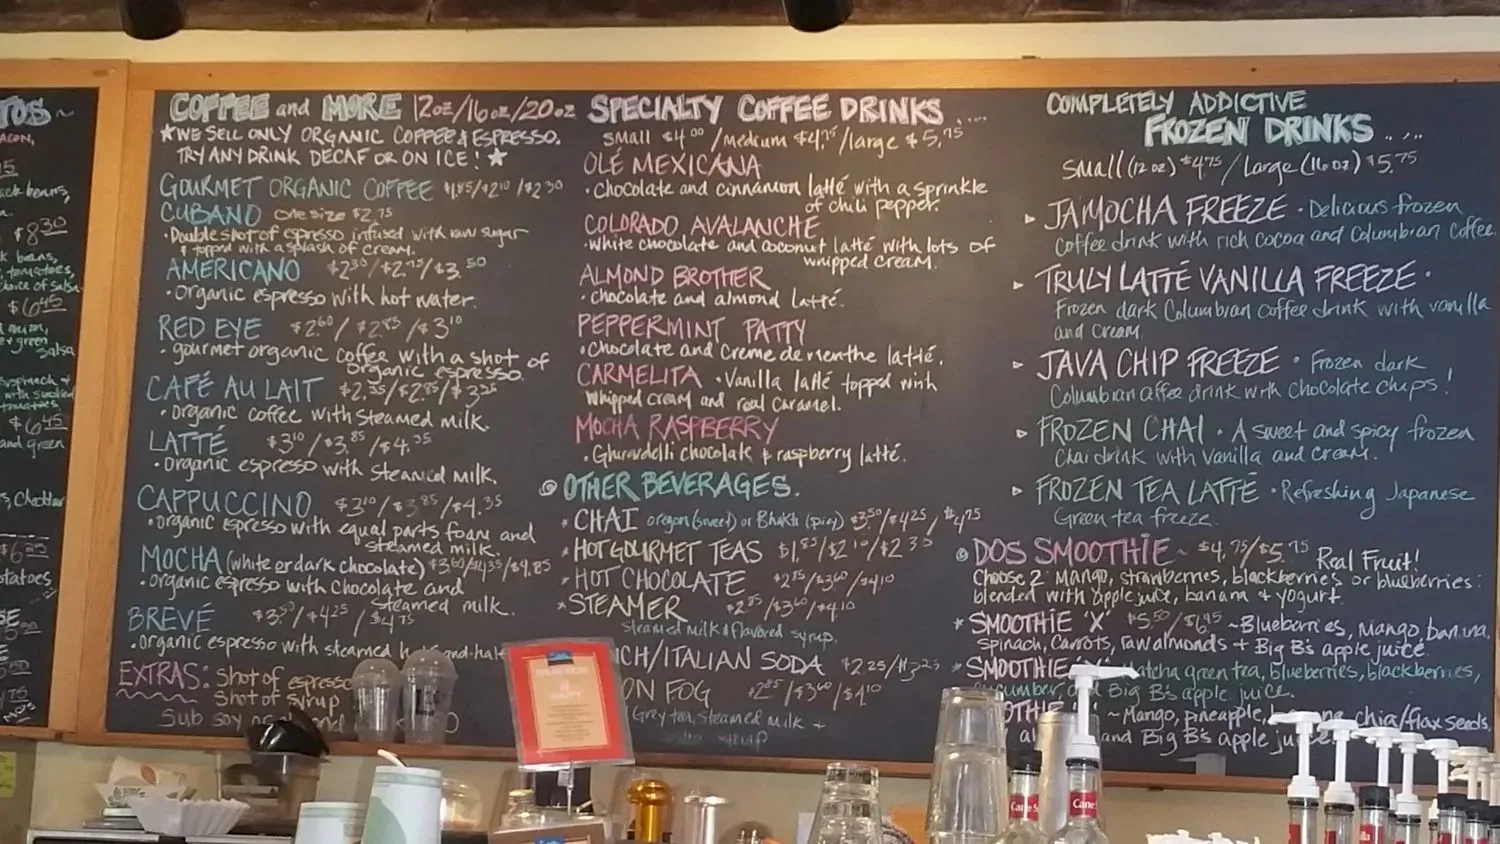 TOS~
ACON,
15
ack beans,
$8 30
k beans,
tomatoes,
choice of salsa
$6 45
+ green
salsa
spinach +
tomatoes
$6 45
and green
s, Cheddar
$6 25
otatoes
COFFEE and MORE 12oz/16oz/20oz
★WE SELL ONLY ORGANIC COFFEE & ESPRESSO.
TRY ANY DRINK DECAF OR ON ICE! ★
GOURMET ORGANIC COFFEE $1.85/$2 10/$2 30
CUBANO one size $2.75
• Double shot of espresso infused with raw sugar
& topped with a splash of cream.
AMERICANO $2 30/$2.75/$3.50
• Organic espresso with hot water.
RED EYE $2 60/$2 85/$3 10
• gourmet organic coffee with a shot of
organic espresso.
CAFÉ AU LAIT $2.35/$2.85/$3 35
• Organic coffee with steamed milk.
LATTÉ $3 10/$3.85/$4.35
• Organic espresso with steamed milk.
CAPPUCCINO $3 10/$3.85/$4.35
• organic espresso with equal parts foam and
steamed milk.
MOCHA (white or dark chocolate) $3 60/$4 35/$4.85
• organic espresso with chocolate and
steamed milk.
BREVÉ $3 50/$4 25/$4 75
• organic espresso with steamed half-and-half
EXTRAS: Shot of espresso
Shot of syrup
Sub soy
SPECIALTY COFFEE DRINKS....
small $4 00 /medium $4.75/large $5.75
OLÉ MEXICANA
• Chocolate and cinnamon latté with a sprinkle
of chili pepper.
COLORADO AVALANCHE
• White chocolate and coconut latté with lots of
whipped cream.
ALMOND BROTHER
• chocolate and almond latté.
PEPPERMINT PATTY
• Chocolate and Creme de menthe latté.
CARMELITA • Vanilla latté topped with
whipped cream and real caramel.
MOCHA RASPBERRY
• Ghirardelli chocolate & raspberry latté.
OTHER BEVERAGES.
* CHAI oregon (sweet) or Bhakti (spicy) $3.50/$4 25/$4 75
* HOT GOURMET TEAS $1.85/$2 10/$2 30
* HOT CHOCOLATE $2 85/$3 60/$4 10
* STEAMER $2 85/$3 60/$4 10
Steamed milk & flavored syrup.
CH/ITALIAN SODA $2.25/$3 25
ON FOG $2 85/$3 60/$4 10
Grey tea, steamed milk +
COMPLETELY ADDICTIVE
FROZEN DRINKS.....
small (12 oz) $4 75 / large (16 oz) $5.75
▹ JAMOCHA FREEZE • Delicious frozen
Coffee drink with rich cocoa and Columbian Coffee.
▹ TRULY LATTÉ VANILLA FREEZE •
Frozen dark Columbian coffee drink with vanilla
and cream.
▹ JAVA CHIP FREEZE • Frozen dark
Columbian coffee drink with chocolate chips!
▹ FROZEN CHAI • A sweet and spicy frozen
Chai drink with vanilla and cream.
▹ FROZEN TEA LATTÉ • Refreshing Japanese
Green tea freeze.
DOS SMOOTHIE ~ $4.75/$5.75 Real Fruit!
Choose 2 Mango, strawberries, blackberries or blueberries:
blended with apple juice, banana & yogurt.
* SMOOTHIE 'X' $5.50/$6 45 ~Blueberries, mango, banana,
spinach, carrots, raw almonds + Big B's apple juice
* SMOOTHIE atcha green tea, blueberries, blackberries,
cumber, Big B's apple juice.
OTHIE ~Mango, pineapple, chia/flax seeds,
and Big B's apple juice